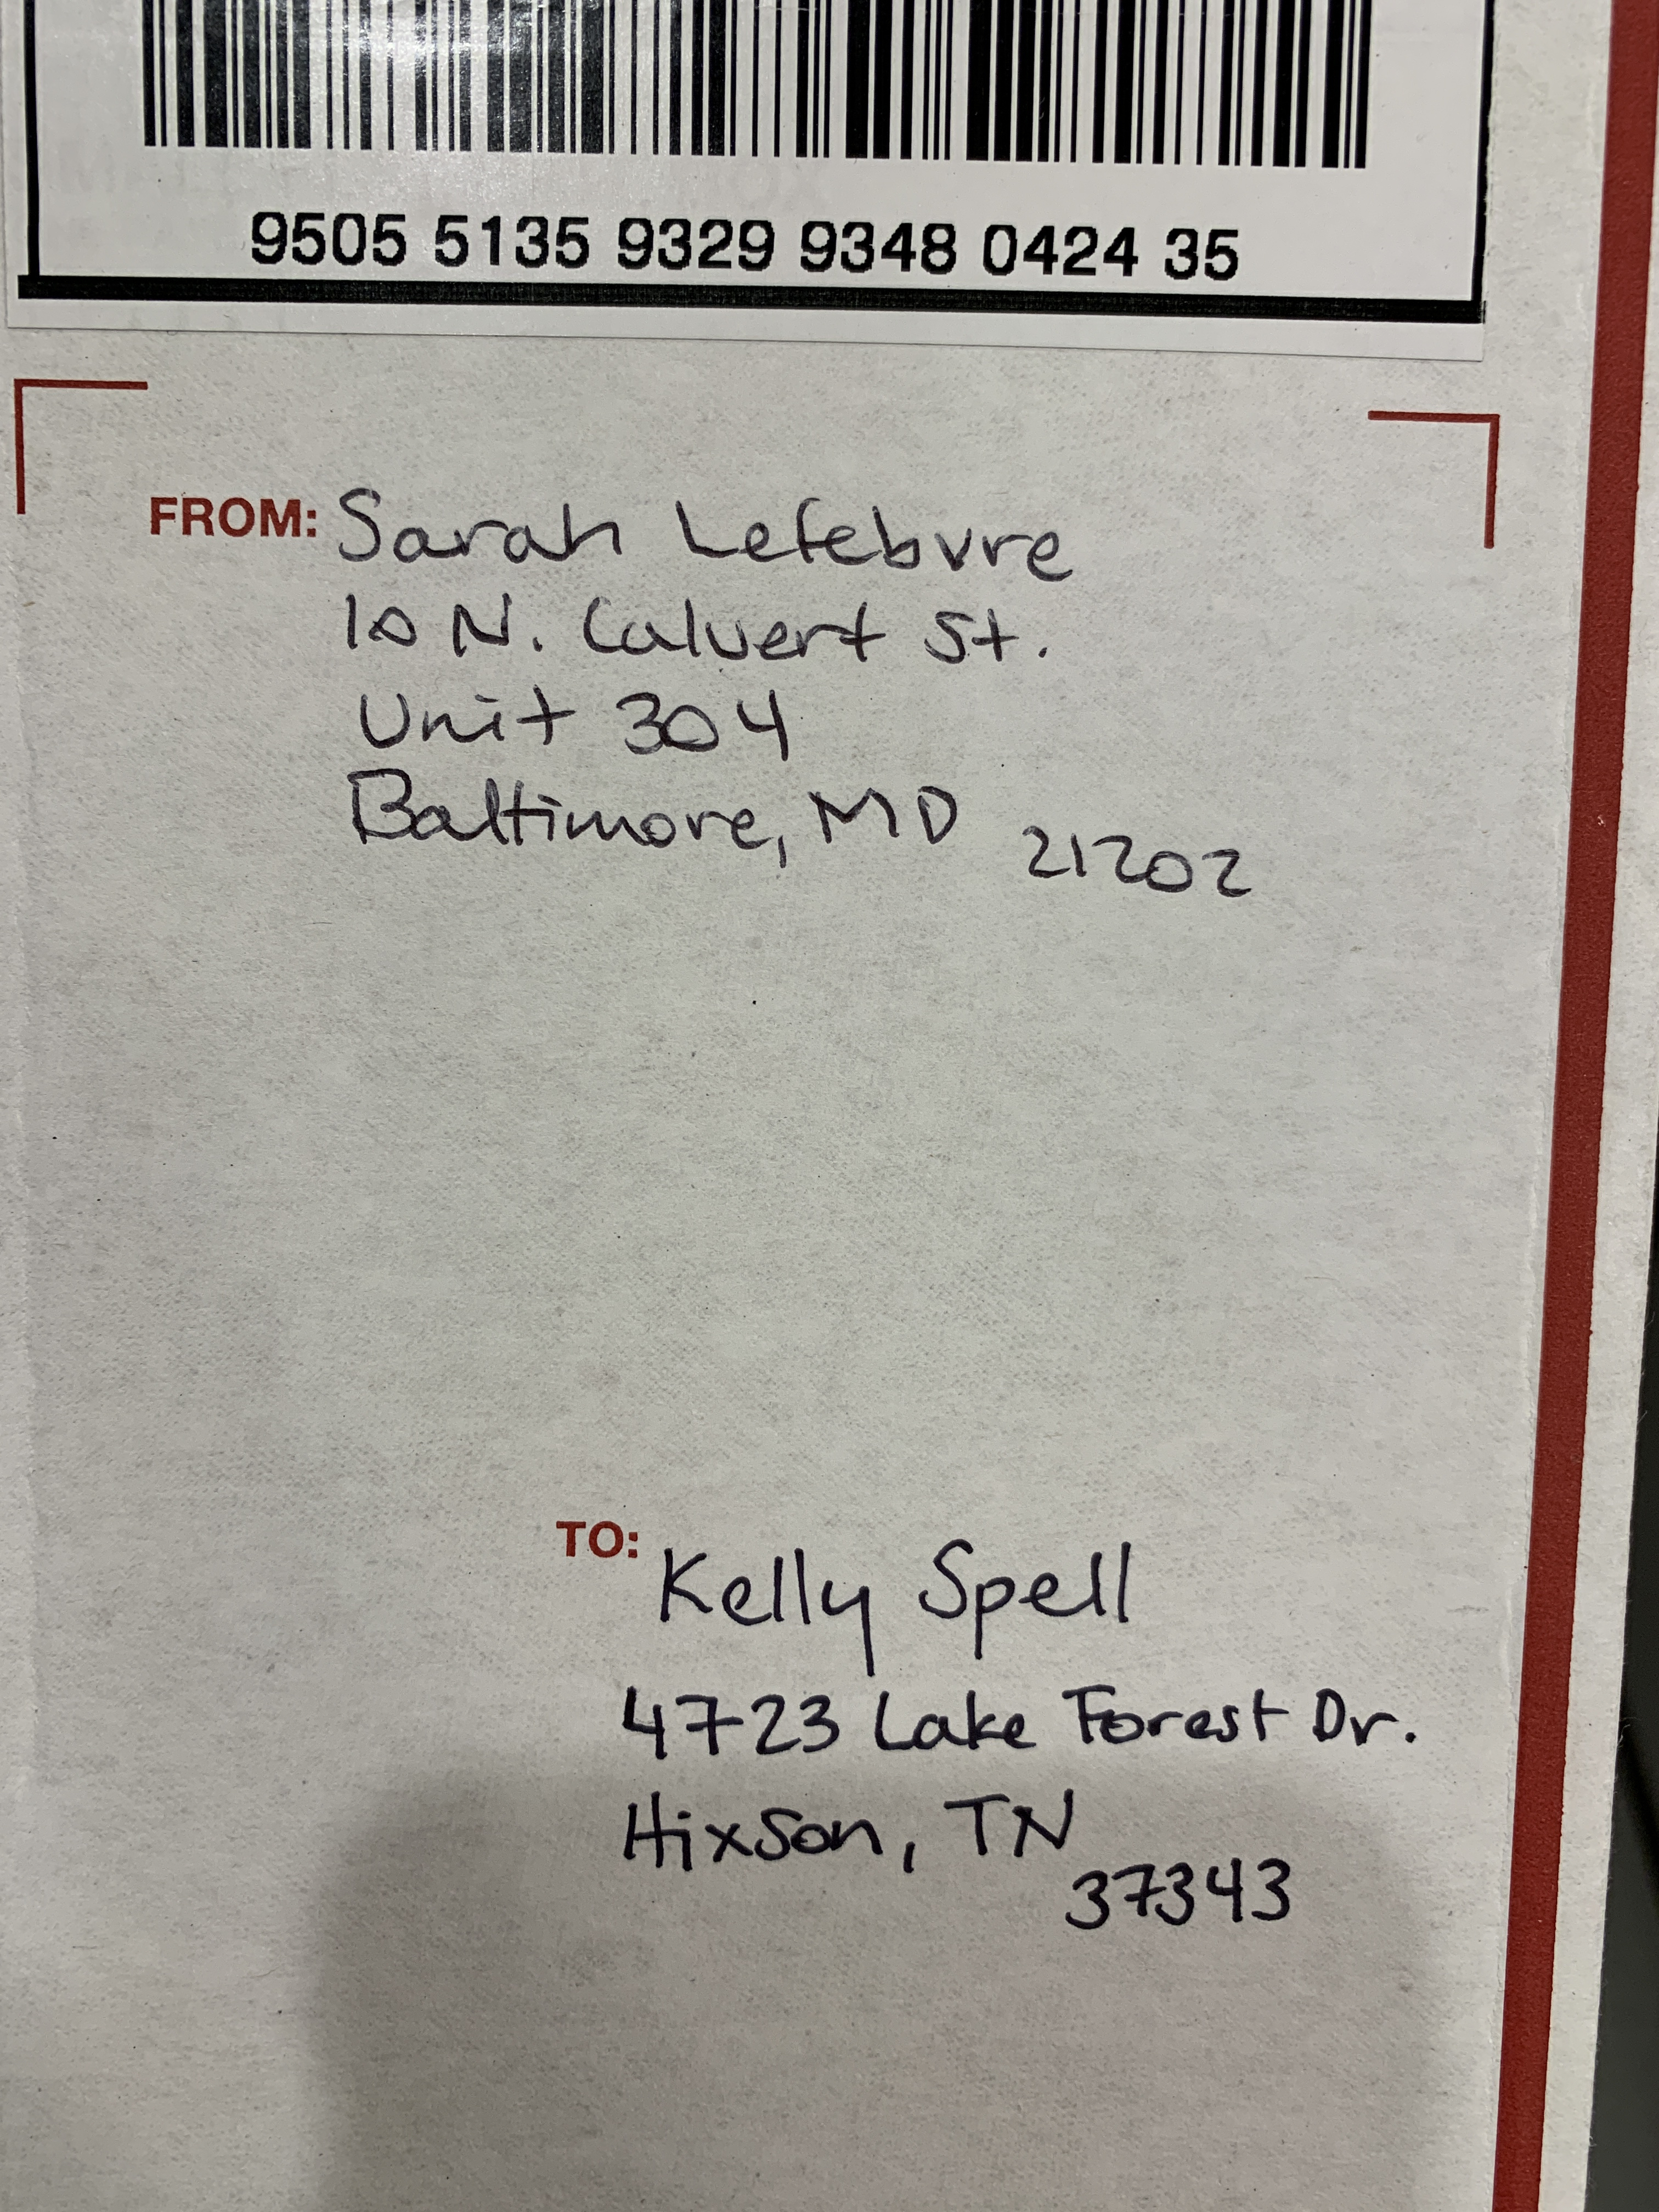 9505 5135 9329 9348 0424 35
FROM: Sarah Lefebvre
10 N. Calvert St.
Unit 304
Baltimore, MD 21202
TO: Kelly Spell
4723 Lake Forest Dr.
Hixson, TN
37343